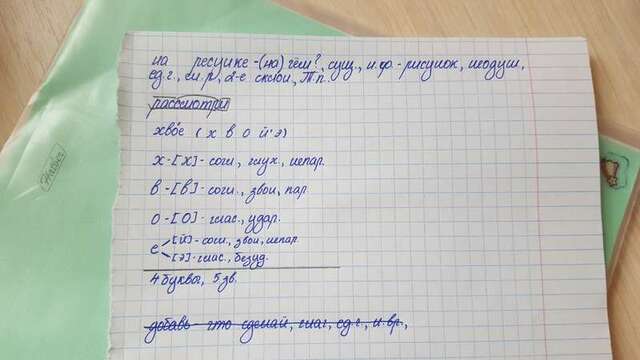 на ресунке - (на) чём?, сущ., н.ф. - рисунок, неодуш,
ед.г., м.р, 2-е склон, Т.п.
рассмотри
хво́е ( х в о й' э)
х - [х] - согл, глух, непар.
в - [в] - согл., звон, пар
о - [о] - глас., удар.
е [й] - согл, звон, непар
[э] - глас., безуд.
4 буквы, 5 зв.
добавь - что сделай, глаг, ед.г., н.вр.,